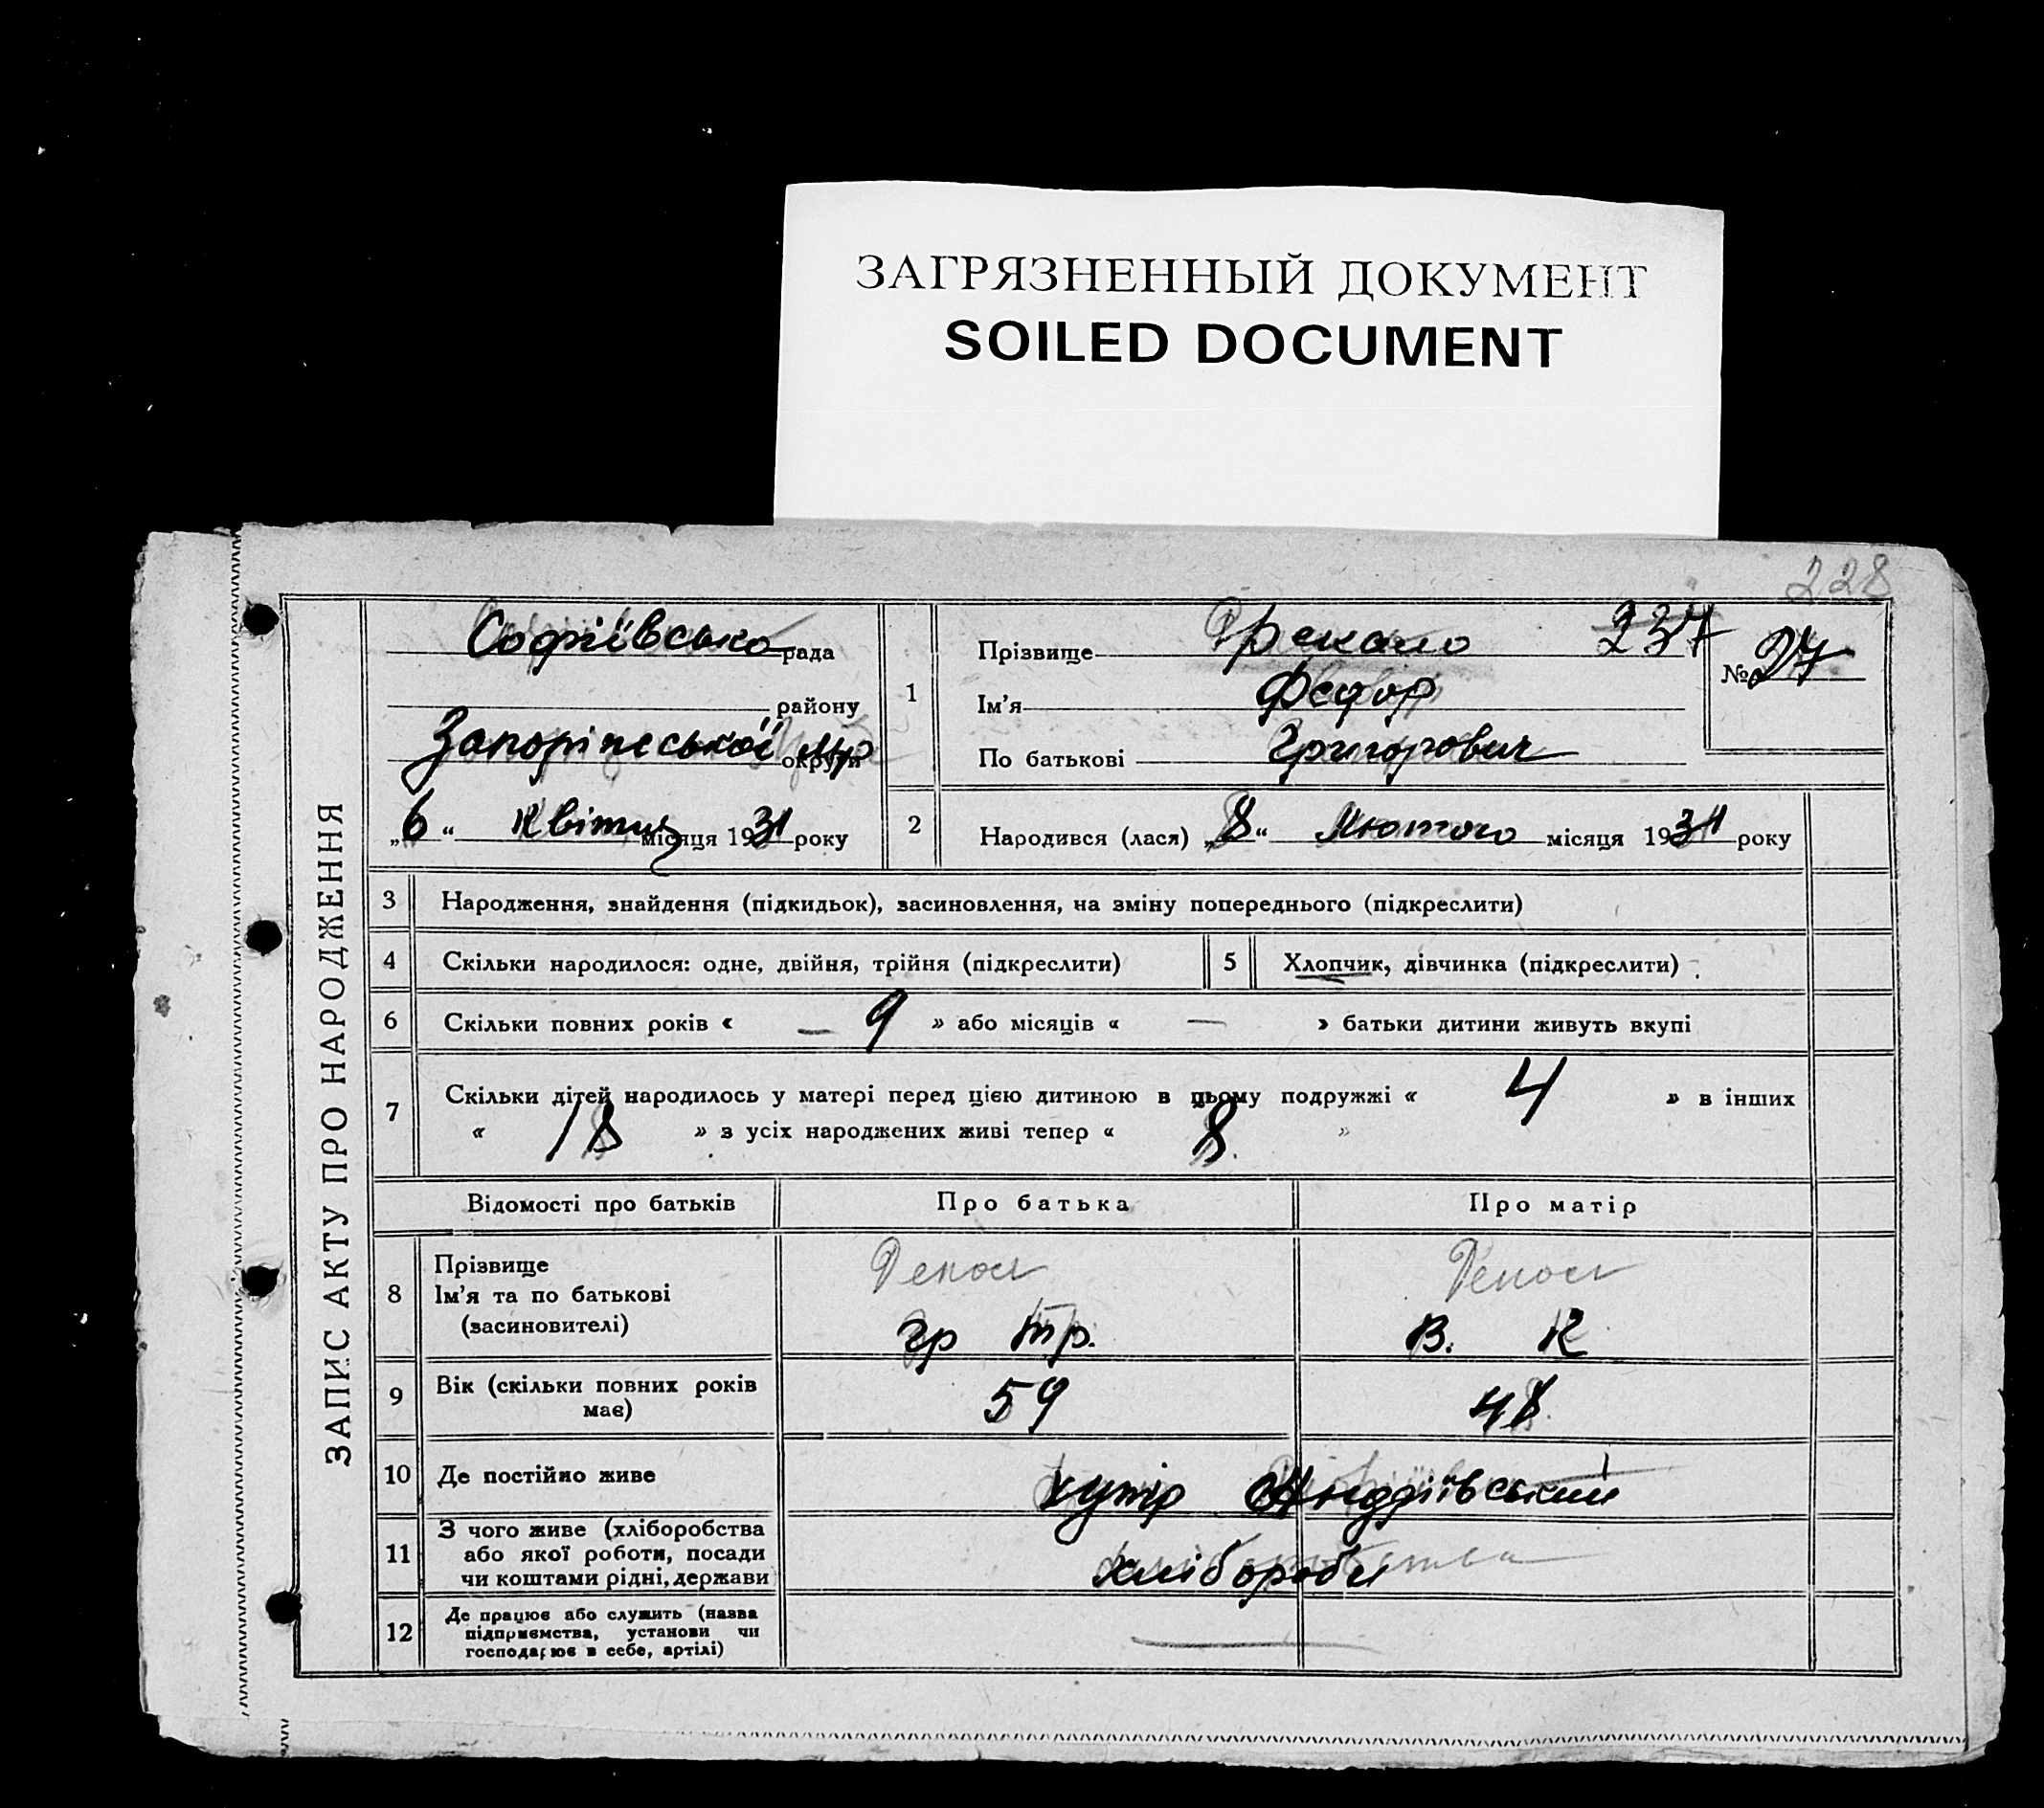 ЗАГРЯЗНЕННЫЙ ДОКУМЕНТ
SOILED DOCUMENT
228
ЗАПИС АКТУ ПРО НАРОДЖЕННЯ
Софіївсько рада
району
округи
„6“ місяця 1931 року
1
Прізвище 237
Ім'я Федор
По батькові Григорович
№ 27
2
Народився (лася) „8“ Лютого місяця 1931 року
3 Народження, знайдення (підкидьок), засиновлення, на зміну попереднього (підкреслити)
4 Скільки народилося: одне, двійня, трійня (підкреслити) 5 Хлопчик, дівчинка (підкреслити)
6 Скільки повних років « — 9 » або місяців « — » батьки дитини живуть вкупі
7 Скільки дітей народилось у матері перед цією дитиною в цьому подружжі « 4 » в інших
« 18 » з усіх народжених живі тепер « 8 »
Відомості про батьків Про батька Про матір
8 Прізвище
Ім'я та по батькові
(засиновителі)
Гр Тр. В. К
9 Вік (скільки повних років має) 59 48
10 Де постійно живе хутір Андріївський
11 З чого живе (хліборобства
або якої роботи, посади
чи коштами рідні, держави хлібороби
12 Де працює або служить (назва
підприємства, установи чи
господарює в себе, артілі)